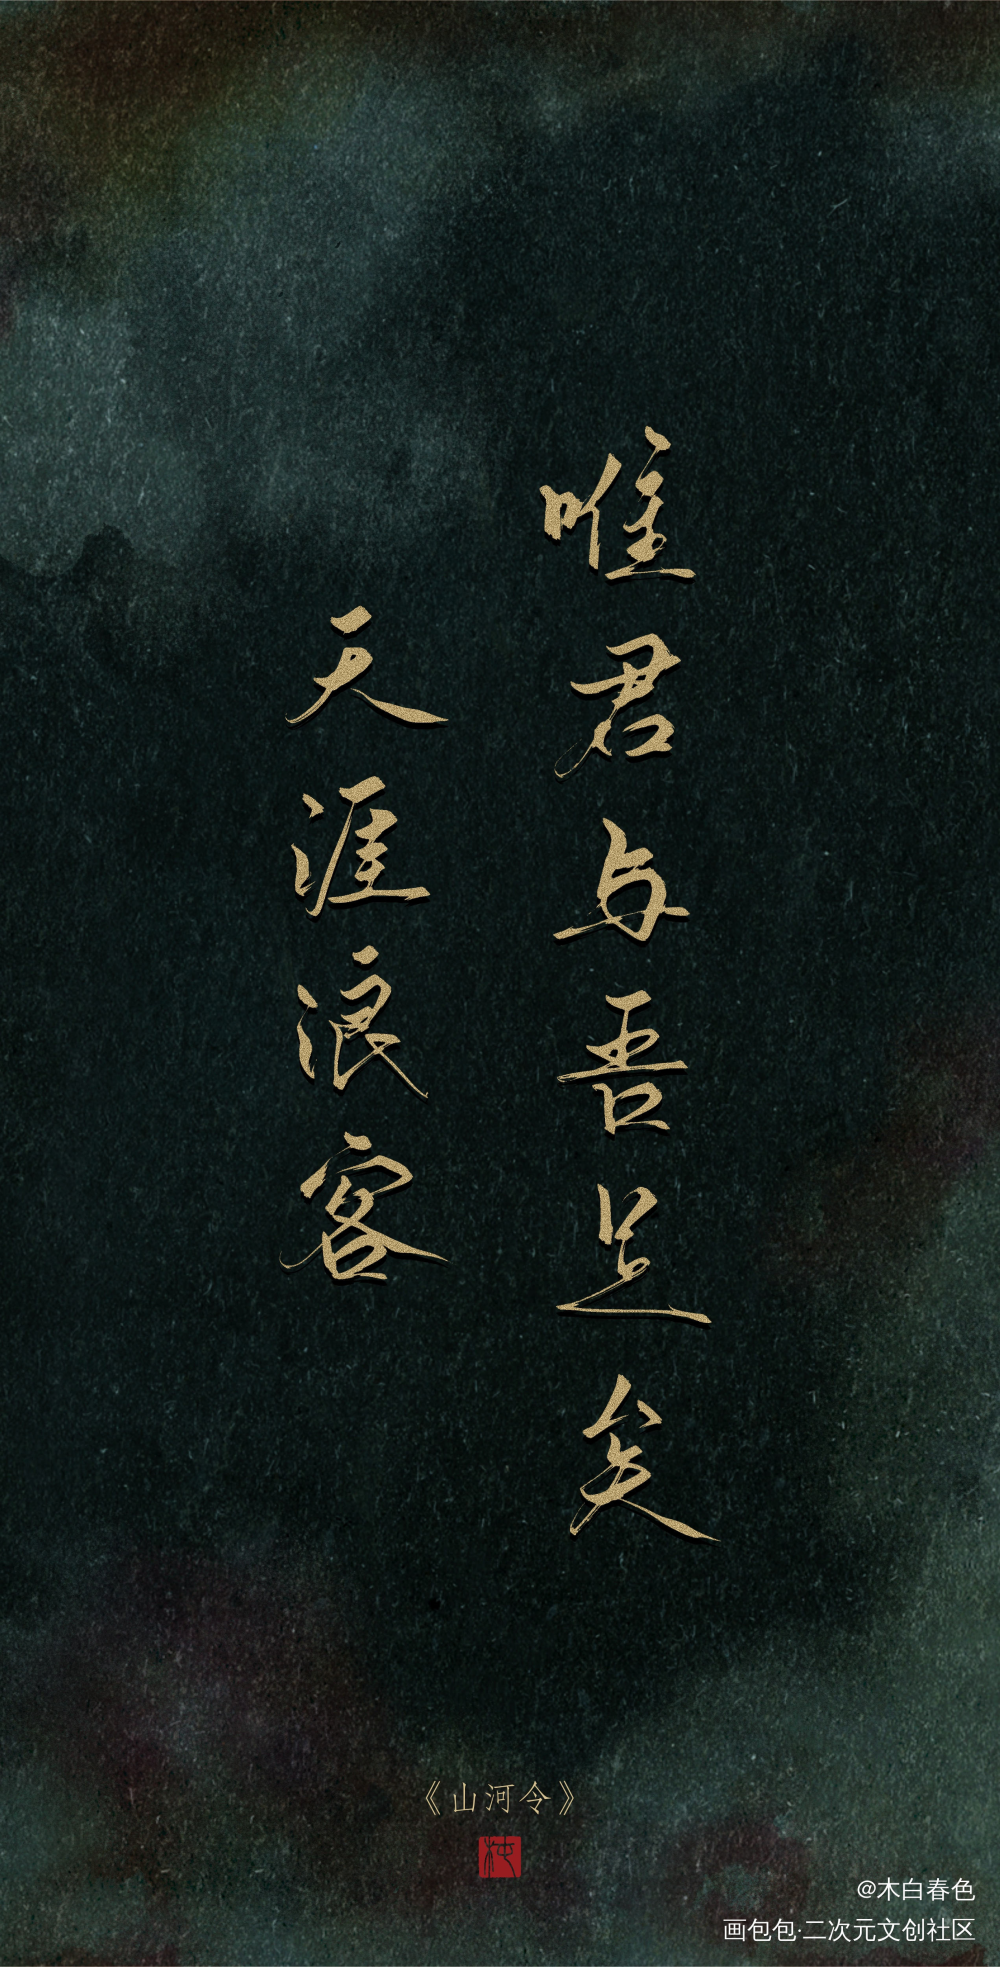 唯君与吾足矣
天涯浪客
《山河令》
@木白春色
画包包·二次元文创社区